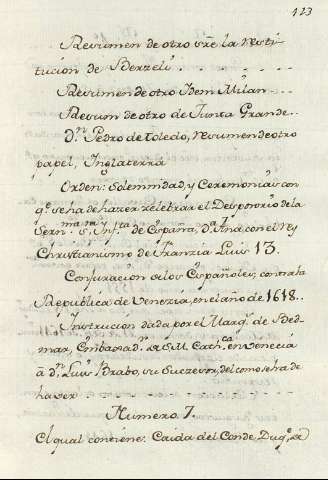 123
Resumen de otro sre la resti
tucion de Berzeli
Resumen de otro Idem Milan
Resum de otro de Junta Grande
Dn Pedro de toledo, resumen de otro
papel, Inglaterra
Orden: Solemnidad, y Ceremonias con
qe se ha de hazer celebrar el Desposorio de la
Serenma sma Infta de España, da Ana, con el rey
Christianismo de Franzia Luis 13.
Conjuracion de los Españoles, contra la
Republica de Venezia, en el año de 1618
Instrucion dada por el Marqs de Bed-
mar, Embaxadr de su Mag Cathca en Venecia
à dn Luis Brabo, su suczesor, del como se ha de
haver
Numero 7.
El qual contiene: Caida del Conde Duqe de